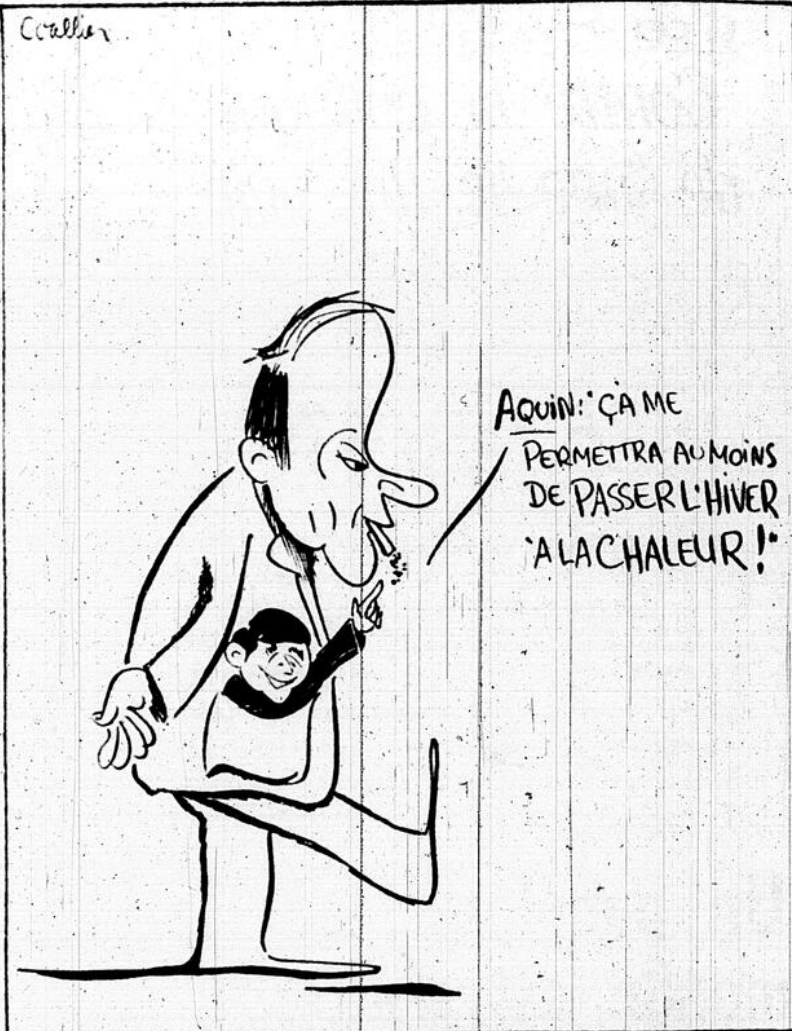 Coallier
AQUIN: "ÇA ME
PERMETTRA AU MOINS
DE PASSER L'HIVER
"A LA CHALEUR!"